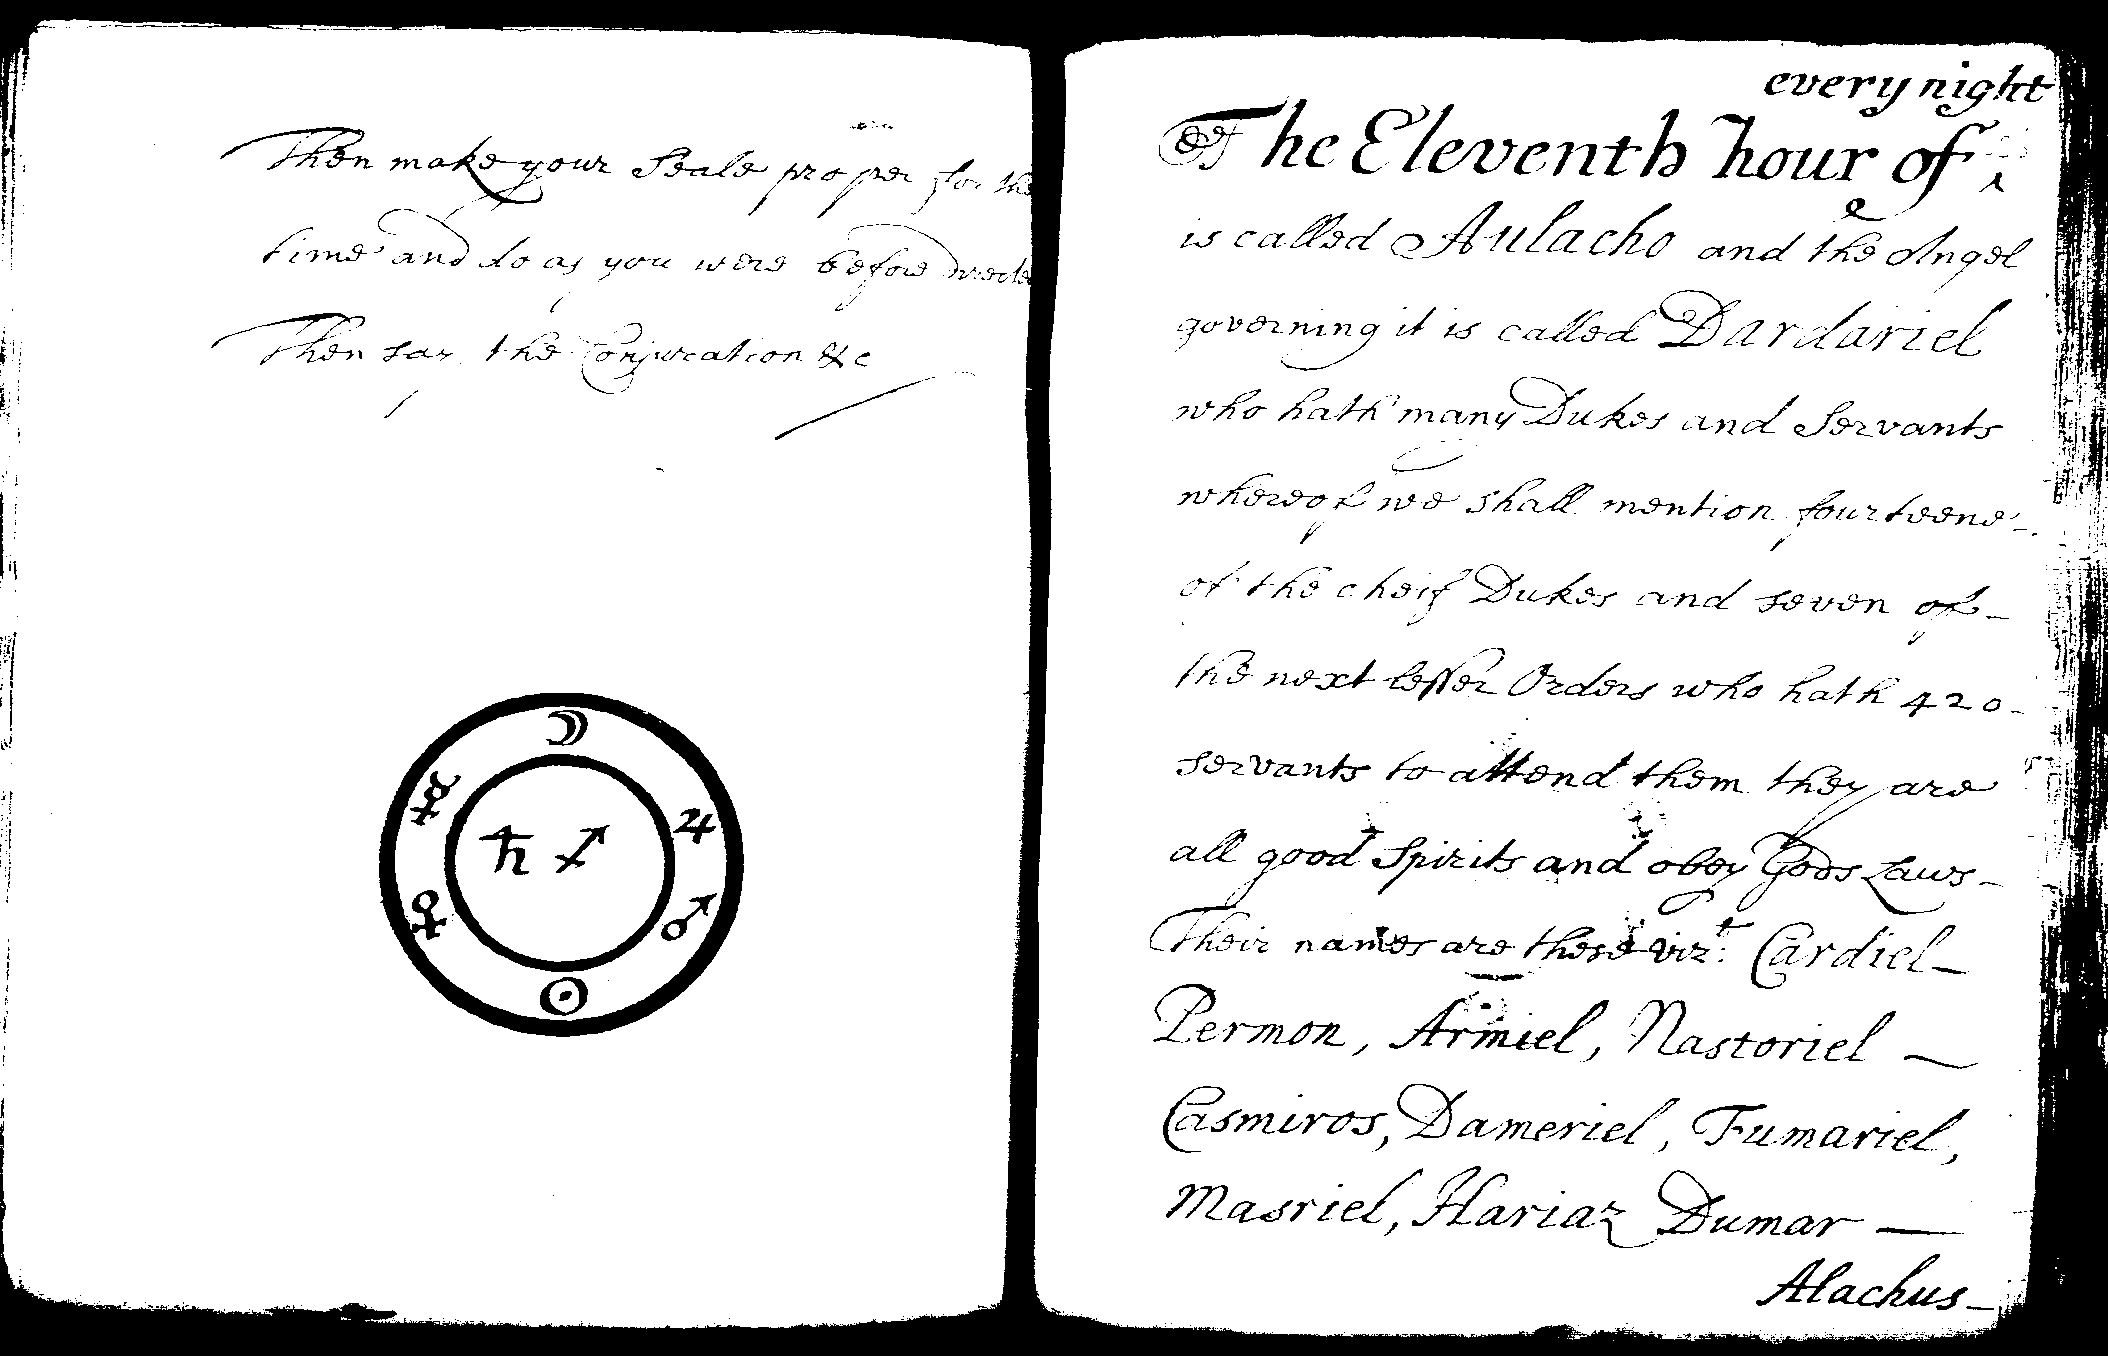 Then make your Seale proper for the
time and do as you were before directed
Then say the Conjuration &c
☽
☿ ♃
♄ ♐
♀ ♂
☉
every night
The Eleventh hour of
is called Aulacho and the Angel
governing it is called Dardariel
who hath many Dukes and Servants
whereof we shall mention fourteene
of the cheif Dukes and seven of
the next lesser Orders who hath 420
servants to attend them they are
all good Spirits and obey Gods Laws
Their names are these vizt: Cardiel
Permon, Armiel, Nastoriel
Casmiros, Dameriel, Fumariel,
Masriel, Hariaz Dumar
Alachus